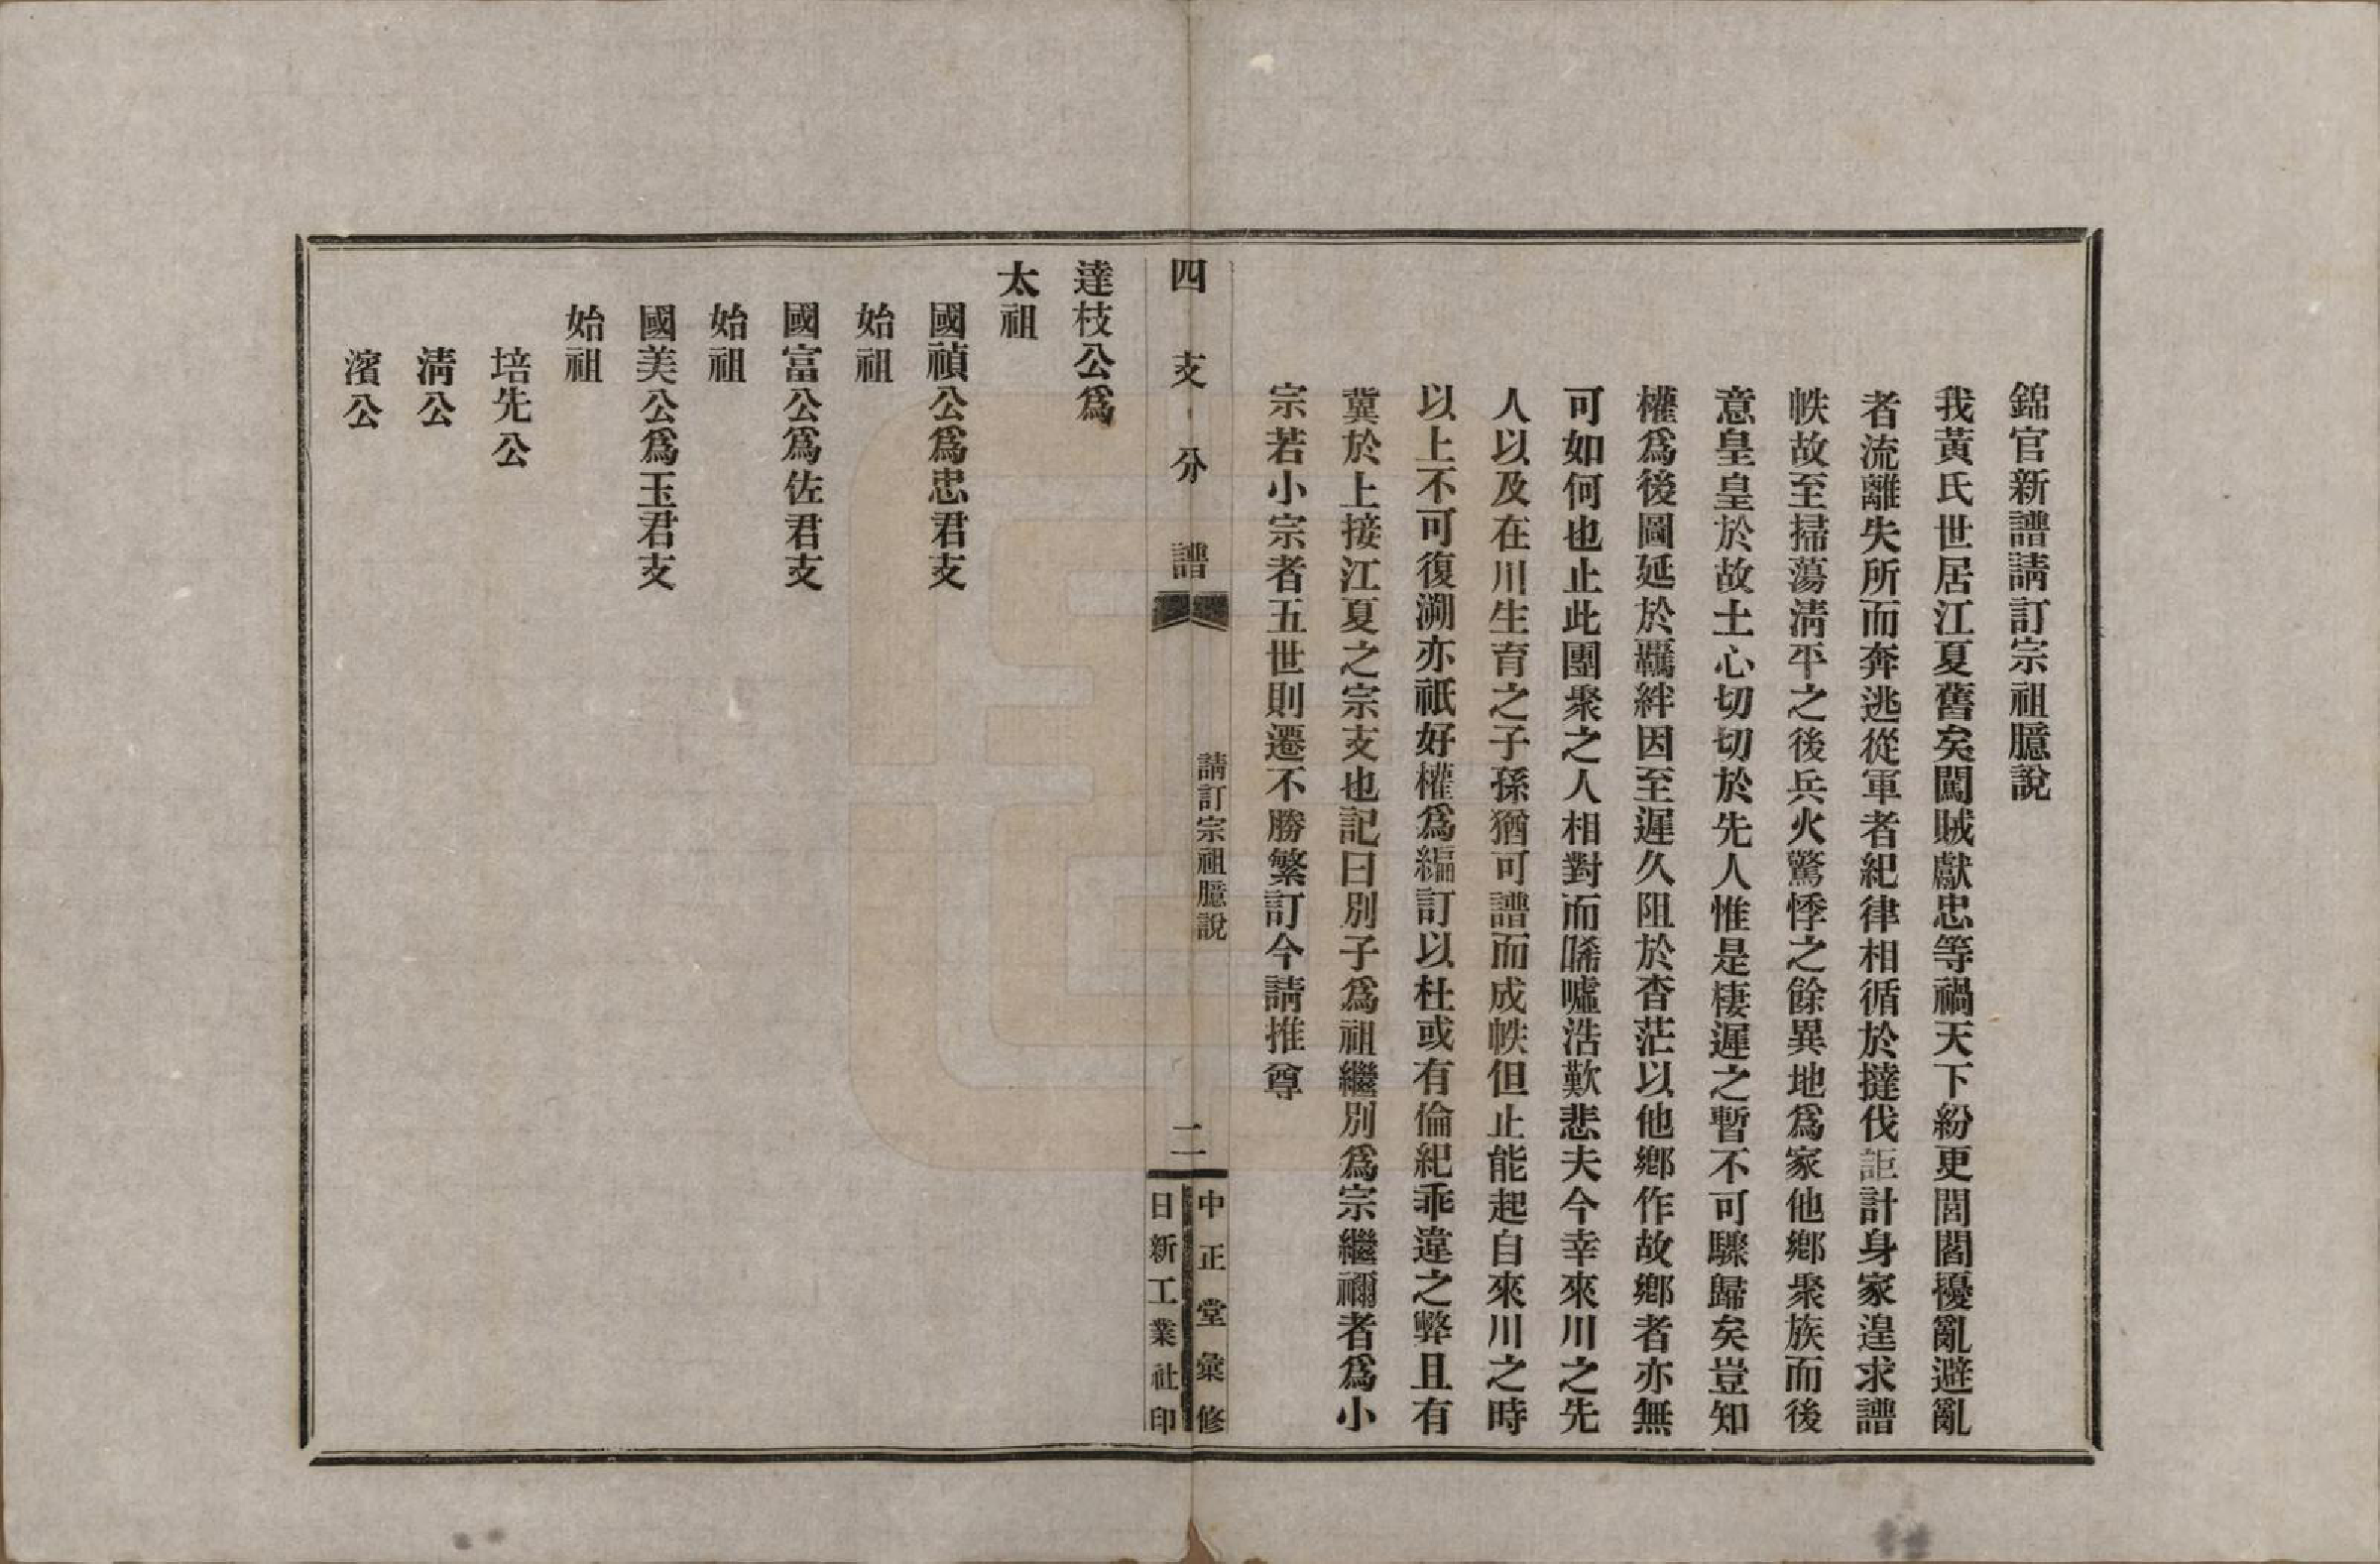 錦官新譜請訂宗祖臆說
我黃氏世居江夏舊矣闖賊獻忠等禍天下紛更閭閻擾亂避亂
者流離失所而奔逃從軍者紀律相循於撻伐詎計身家遑求譜
帙故至掃蕩淸平之後兵火驚悸之餘異地爲家他鄕聚族而後
意皇皇於故土心切切於先人惟是棲遲之暫不可驟歸矣豈知
權爲後圖延於羈絆因至遲久阻於杳茫以他鄕作故鄕者亦無
可如何也止此團聚之人相對而唏噓浩歎悲夫今幸來川之先
人以及在川生育之子孫猶可譜而成帙但止能起自來川之時
以上不可復溯亦祇好權爲編訂以杜或有倫紀乖違之弊且有
冀於上接江夏之宗支也記曰別子爲祖繼別爲宗繼禰者爲小
宗若小宗者五世則遷不勝繁訂今請推尊
四支分譜
請訂宗祖臆說
二
中正堂彙修
日新工業社印
達枝公爲
太祖
國禎公爲忠君支
始祖
國富公爲佐君支
始祖
國美公爲玉君支
始祖
培先公
淸公
濱公